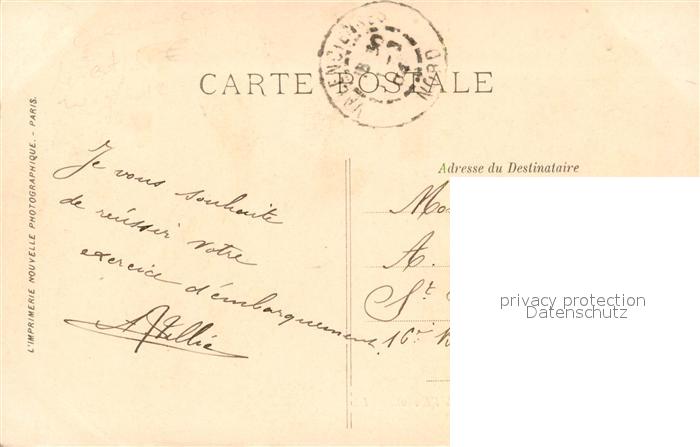 CARTE POSTALE
VALENCIENNES
NORD
Adresse du Destinataire
L'IMPRIMERIE NOUVELLE PHOTOGRAPHIQUE. - PARIS.
Je vous souhaite
de réussir votre
exercice d'embarquement.
A.
St
16e
privacy protection
Datenschutz